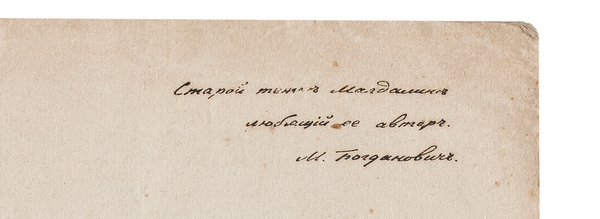 Старой Магдалинѣ
любящій ее авторъ.
М. Богдановичъ.